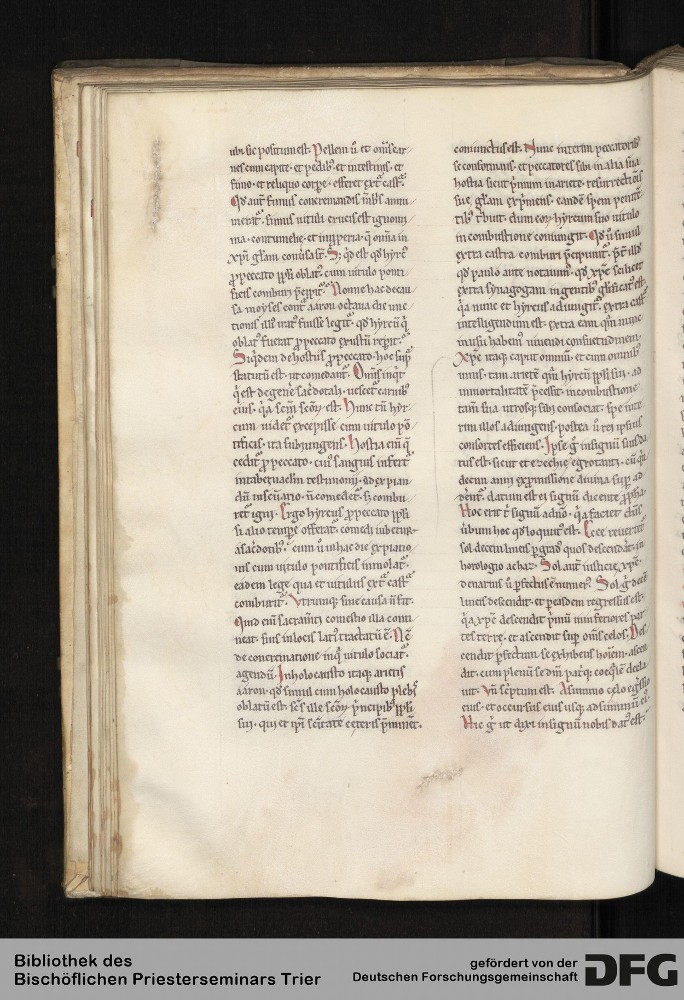 ubi sic positum est. Pellem ū et oms car
nes cum capite. et pedib; et intestinis. et
fimo. et reliquo corpe. efferet ext̃ cast̃.
Qd aut̃ fimus concremandis
merat̃. fimus vituli crucis est ignomi
nia. contumelie. et inpperia. q̃ omia in
xp̃i gl̃am conũsa st̃. S; qd est qd hyrc̃
p peccato ppl̃i oblat̃. cum vitulo ponti
ficis comburi p̃cipit̃. Nonne hac de cau
sa moyses cont̃ aaron octava die unc
tionis illi irat̃ fuisse legit̃. qd hyrcũ q̃
oblat̃ fuerat p peccato exustũ repit̃.
Siqdem de hostiis p peccato. hoc sup̃
statutũ est. ut comedant̃. Omis inqt̃
q̃ est de genẽ sacẽdotali. vescet̃ carnib;
eius. q̃a scm̃ scõ est. Hunc tñ hyr
cum videt̃ excepisse cum vitulo põ
tificis. ita subiungens. Hostia em̃ q̃
cedit̃ p peccato. cui; sanguis infert̃
in tabernaclm̃ testimonii. ad expian
dũ in scũario. ñ comedet̃. s; combu
ret̃ igni. Ergo hyrcus p peccato ppl̃i
si alio tempe offerat̃. comedi iubetur
a sacẽdotib;. cum ũ in hac die expiatio
nis cum vitulo pontificis immolat̃.
eadem lege qua et vitulus ext̃ cast̃
comburit̃. Vtrumq; sine causa ñ fit.
Quid em̃ sacram̃ti comestio illa conti
neat. suis in locis lati; tractatũ ẽ. Nc̃
de concrematione inq̃ vitulo sociat̃.
agendũ. In holocausto itaq; arietis
aaron. qd simul cum holocausto plebis
oblatũ est. scs ille scõ p̃ncipib; ppl̃i
sui. qui et ip̃i scĩtate ceteris p̃minet̃.
coniunctus est. Nunc interim peccatorib;
se conformans. et peccatores sibi in alia sua
hostia sicut p̃mum in ariete. resurrectiõis
sue gl̃am exp̃mens. eande sp̃em penitẽ
tib; t̃buit. dum eoȝ hyrcum suo vitulo
in combustione coniungit. Qd ũ simul
extra castra comburi p̃cipiunt̃. p̃t illd
qd paulo ante notavim;. qd xp̃c scilicet
extra synagogam in gentib; gl̃ificat̃ est.
q̃a nunc et hyrcus adiungit̃. extra cast̃
intelligendum est. extra eam qm̃ nunc
in usu habem; vivendi consuetudinem.
Xp̃c itaq; caput omnium. et cum omnib;
unus. tam ariete qm̃ hyrcũ ppl̃i sui. ad
immortalitatẽ p̃cessit. in combustione
tam̃ sua utrosq; sibi consociat. spe inte
rim illos adiungens. postea ũ rei ipsius
consortes efficiens. Ipse g̃ in signũ suis da
tus est. sicut et ezechie egrotanti. cũ q̃n
decim anni ex pmissione divina sup̃ ad
derent̃. datum est ei signũ dicente ppha.
Hoc erit t̃ signũ a dño. q̃a faciet dñs
ũbum hoc qd loquut; est. Ecce reverter̃
sol decem lineis p gradus quos descenderat̃. in
horologio achaz. Sol aut̃ iusticie xp̃c.
denarius ũ pfectus ẽ numer;. Sol g̃ decẽ
lineis descendit. et p easdem regressus est.
q̃a xp̃c descendit p̃mũ in inferiores par
tes terre. et ascendit sup̃ om̃s celos. Des
cendit pfectum se exhibens hoĩem. ascen
dit. cum plenũ se dm̃ patriq; coeqlẽ decla
rat. Vñ sc̃ptum est. A summo celo egressio
eius. et occursus eius usq; ad summũ ei;.
Hic g̃ ut dixi in signũ nobis dat; est.
Bibliothek des
Bischöflichen Priesterseminars Trier
gefördert von der
Deutschen Forschungsgemeinschaft
DFG